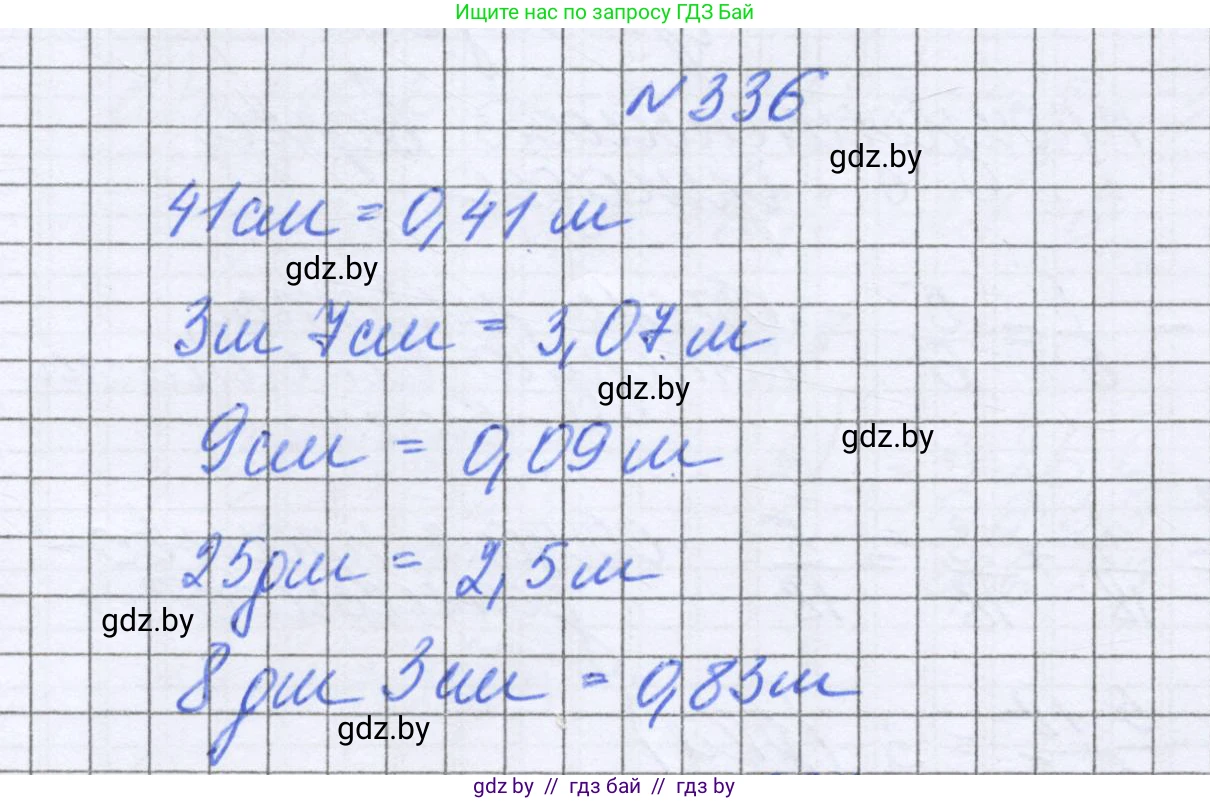 Ищите нас по запросу ГДЗ Бай
№ 336
gdz.by
41см = 0,41 м
gdz.by
3м 7см = 3,07 м
gdz.by
gdz.by
9см = 0,09 м
25дм = 2,5 м
gdz.by
8 дм 3 см = 0,83 м
gdz.by
gdz by // гдз бай // гдз by